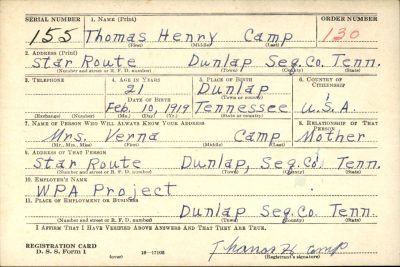 SERIAL NUMBER 1. NAME (Print) ORDER NUMBER
155 Thomas Henry Camp 130
(First) (Middle) (Last)
2. ADDRESS (Print)
Star Route Dunlap Seq. Co. Tenn.
(Number and street or R. F. D. number) (Town) (County) (State)
3. TELEPHONE 4. AGE IN YEARS 5. PLACE OF BIRTH 6. COUNTRY OF CITIZENSHIP
21 Dunlap
(Town or county)
DATE OF BIRTH
Feb. 10, 1919 Tennessee U.S.A.
(Exchange) (Number) (Mo.) (Day) (Yr.) (State or country)
7. NAME OF PERSON WHO WILL ALWAYS KNOW YOUR ADDRESS 8. RELATIONSHIP OF THAT PERSON
Mrs. Verna Camp Mother
(Mr., Mrs., Miss) (First) (Middle) (Last)
9. ADDRESS OF THAT PERSON
Star Route Dunlap, Seq. Co, Tenn.
(Number and street or R. F. D. number) (Town) (County) (State)
10. EMPLOYER'S NAME
WPA Project
11. PLACE OF EMPLOYMENT OR BUSINESS
Dunlap Seq. Co. Tenn.
(Number and street or R. F. D. number) (Town) (County) (State)
I AFFIRM THAT I HAVE VERIFIED ABOVE ANSWERS AND THAT THEY ARE TRUE.
REGISTRATION CARD
D. S. S. Form 1 (over) 16—17105 Thomas H Camp
(Registrant's signature)